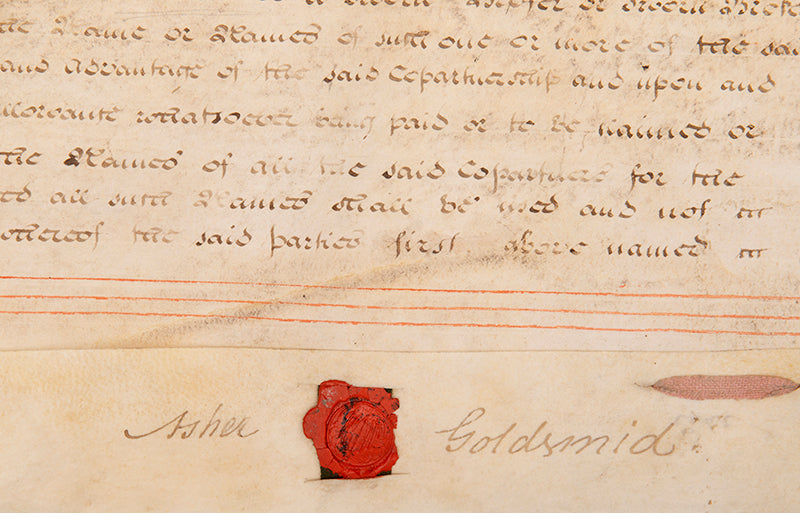 or
the Name or Names of such one or more of the said
and Advantage of the said Copartnership and upon and
whatsoever being paid or to be named or
the Names of all the said Copartners for the
all such Names shall be used and not
the said parties first above named
Asher Goldsmid